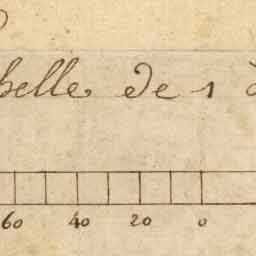 helle de 1
60 40 20 0